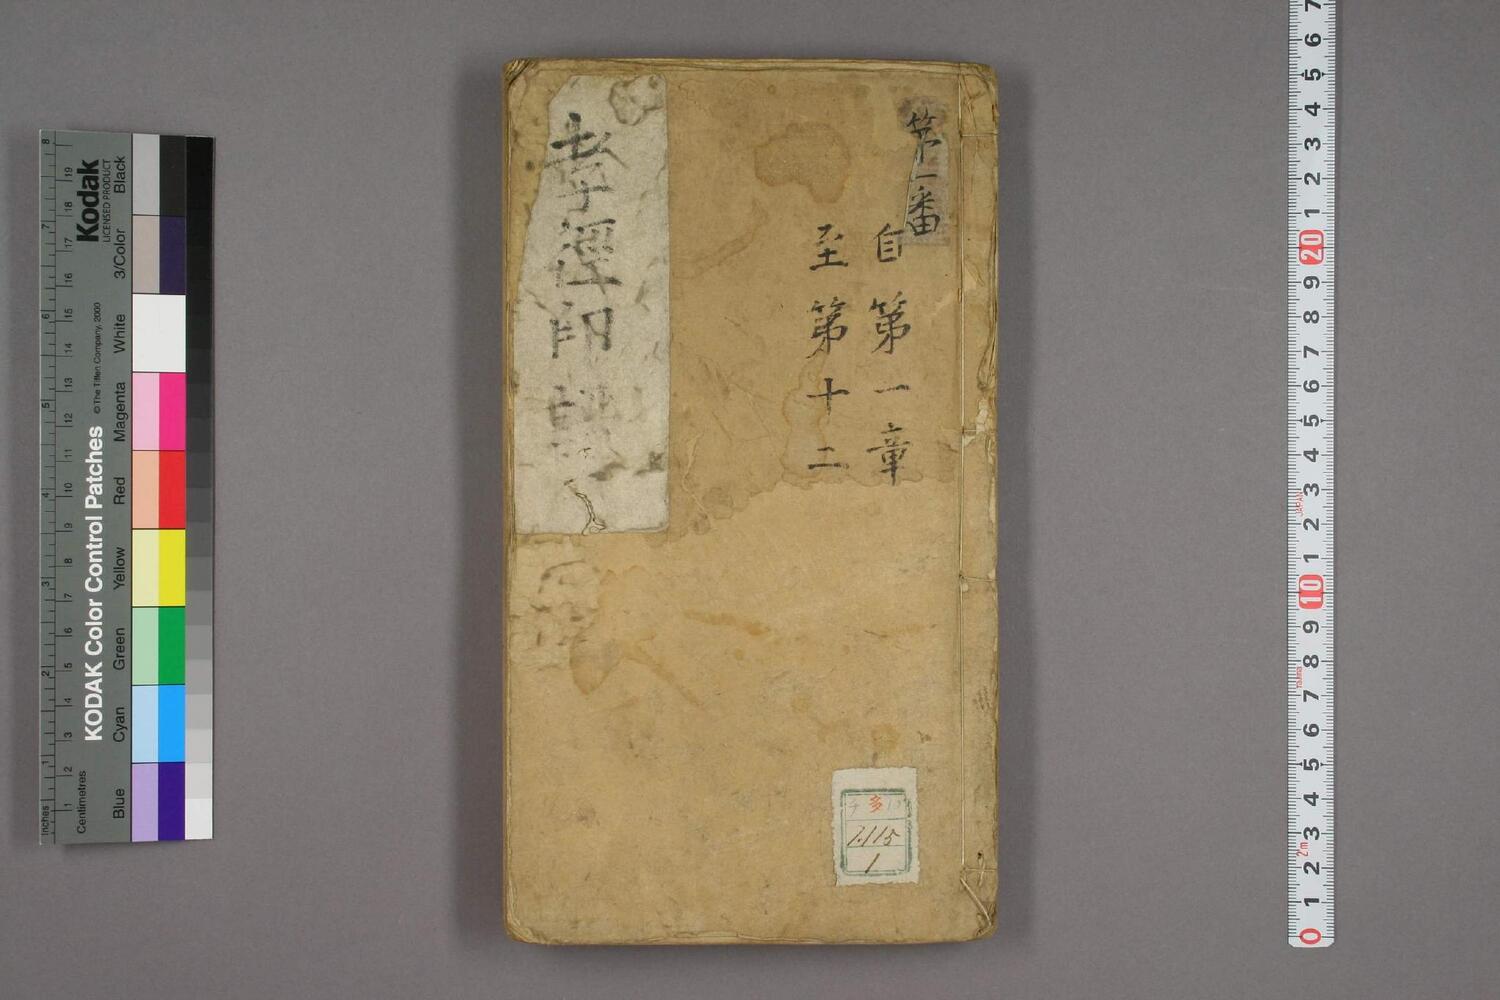 第一番
自第一章
至第十二
多
1.115
1
KODAK Color Control Patches
©The Tiffen Company, 2000
Kodak
LICENSED PRODUCT
Inches
1
2
3
4
5
6
7
8
Centimetres
1
2
3
4
5
6
7
8
9
10
11
12
13
14
15
16
17
18
19
Blue
Cyan
Green
Yellow
Red
Magenta
White
3/Color
Black
0
1
2
3
2m
4
5
6
7
8
9
10
1
2
3
JAPAN
4
5
6
7
8
9
20
1
2
3
4
5
6
7